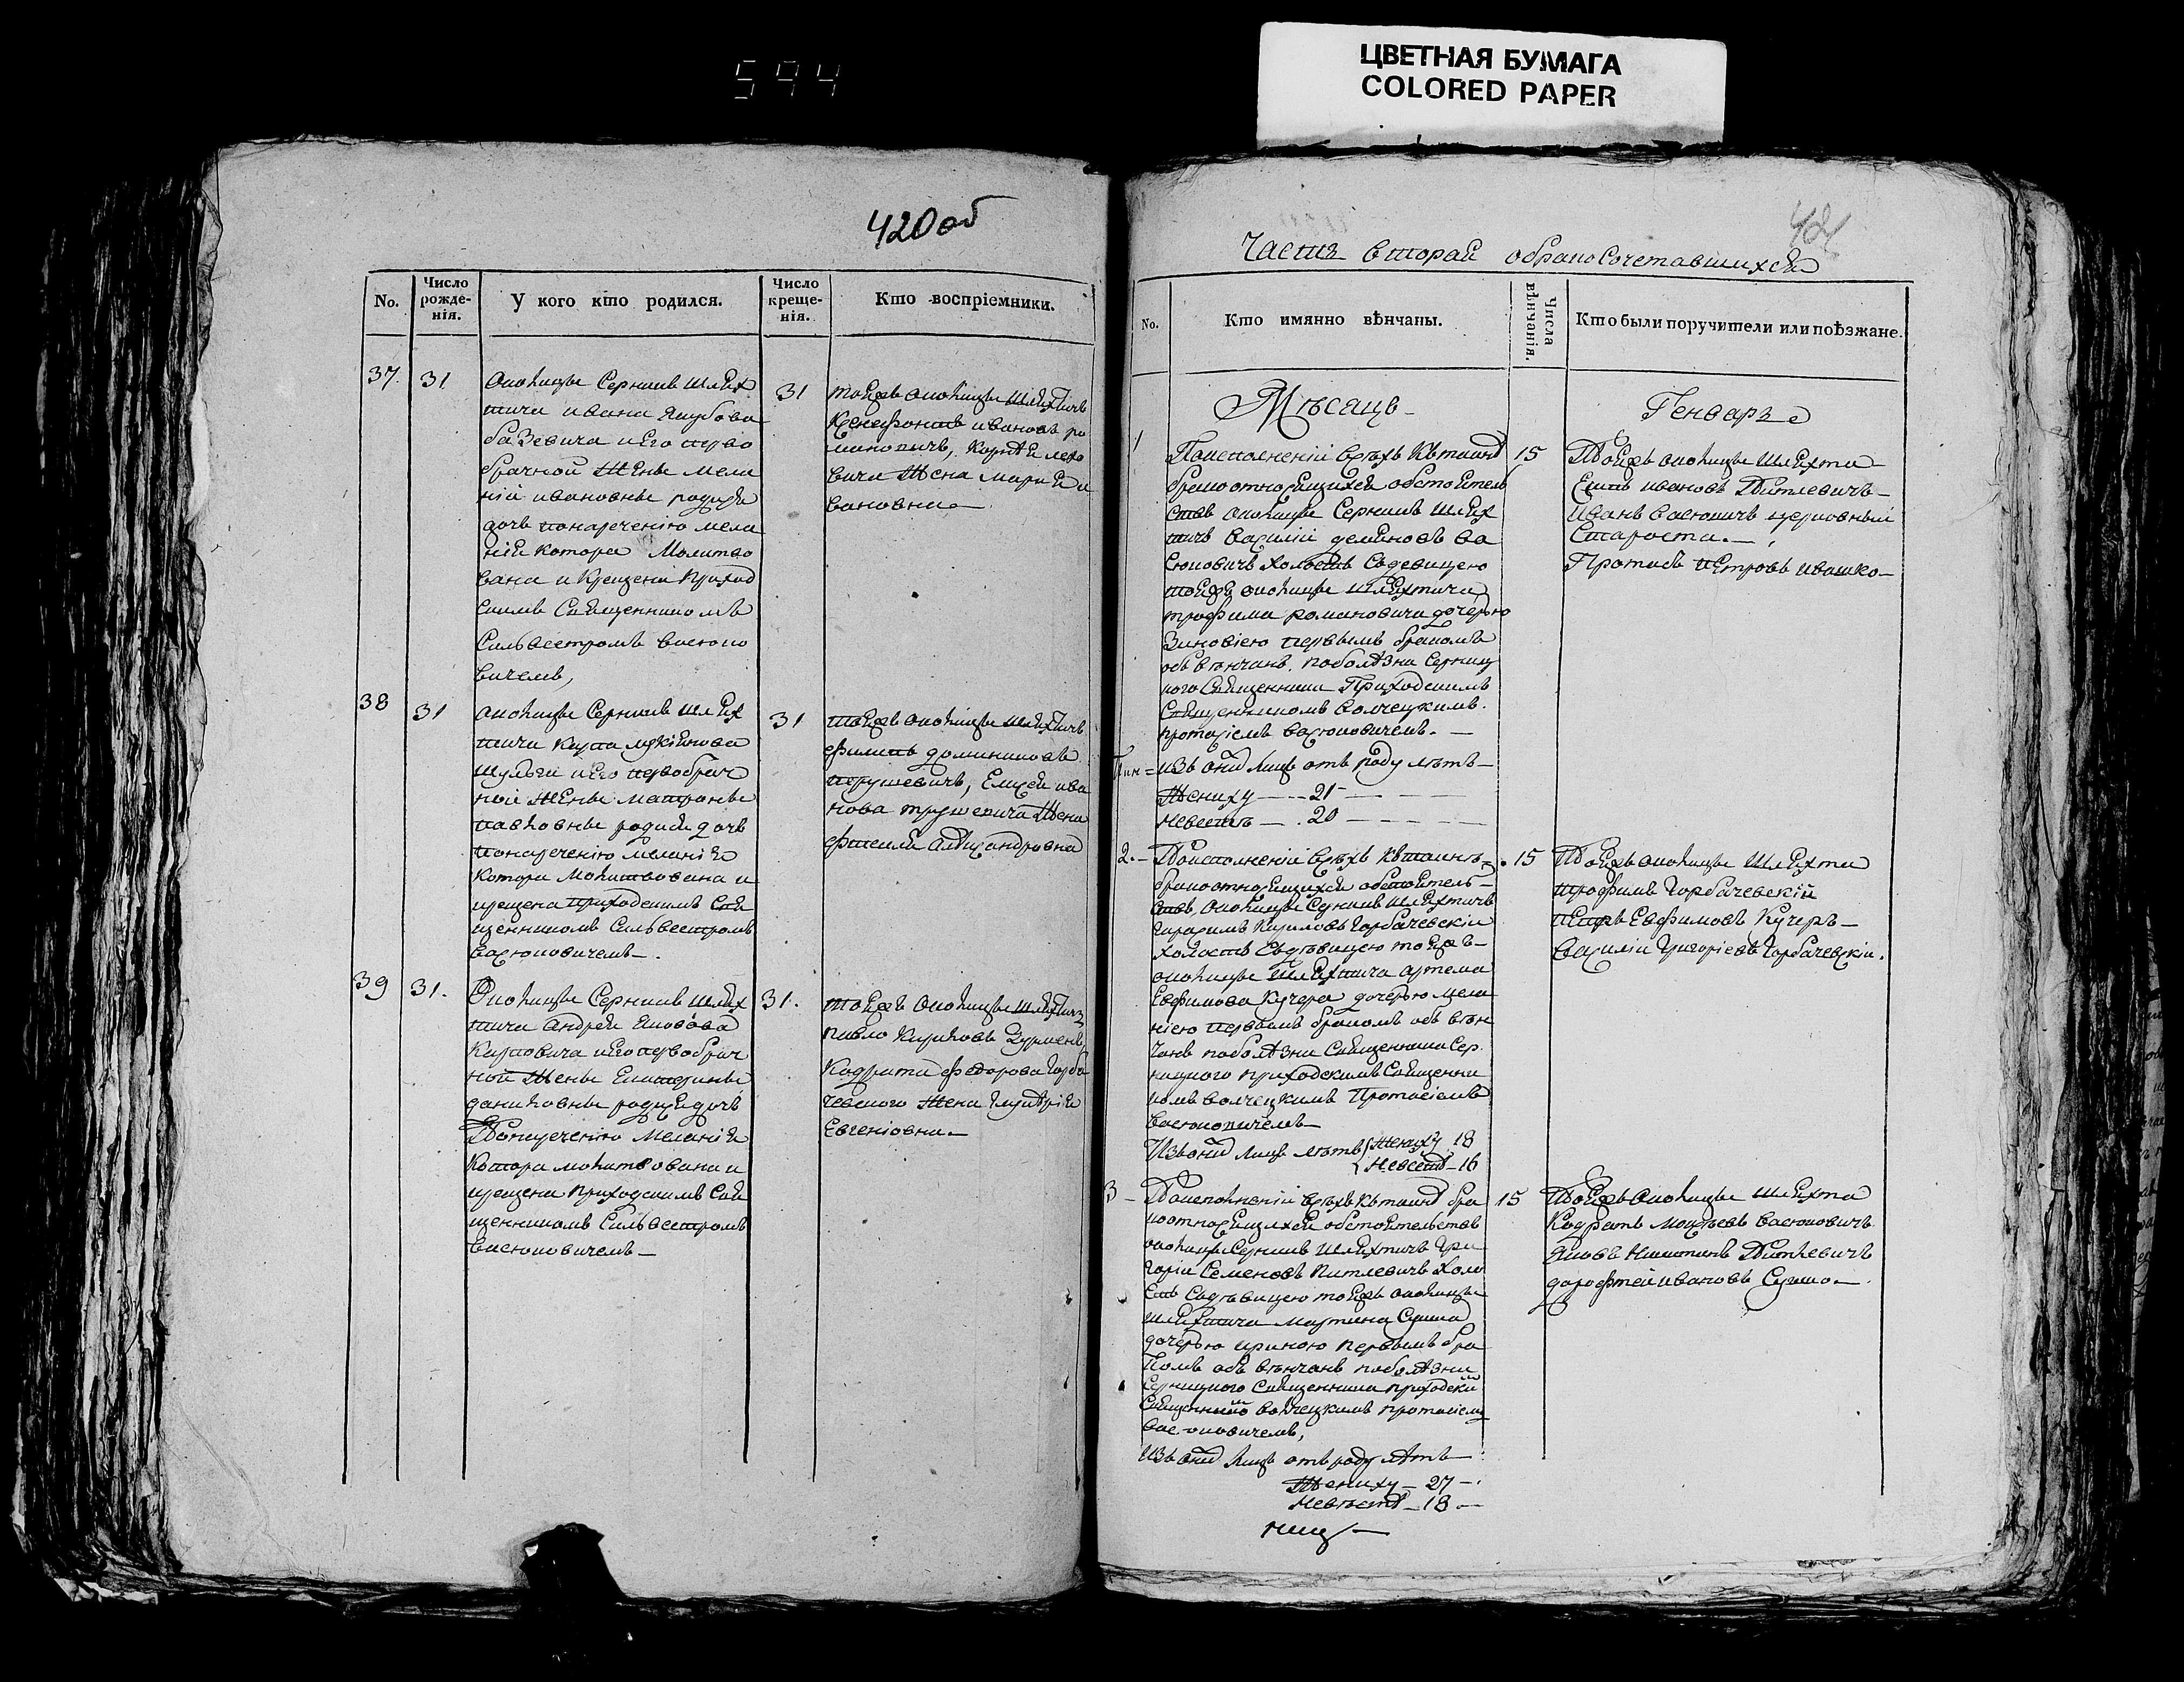 594
ЦВЕТНАЯ БУМАГА
COLORED PAPER
420 об
No.
Число рожде-нія.
У кого кто родился.
Число креще-нія.
Кто воспріемники.
37.
31
Околицы Серникъ шлях
тича Ивана Якубова
базевича и его перво
брачной жены мела
ніи ивановны родися
дочь понаречению мела
нія котора Молитво
вана и крещена приход
скимъ Священникомъ
Сильвестромъ васюко
вичемъ,
31
тоежъ околицы шляхтичъ
Ксенефонтъ ивановъ ро
мановичъ,
вича жена марія и
вановна
38
31
околицы Серникъ шлях
тича
шульги и его первобрач
ной жены матроны
павловны родися дочь
понаречению меланія
котора молитвована и
крещена приходскимъ свя
щенникомъ Сильвестромъ
васюковичемъ.
31
тоежъ околицы шляхтичъ
филипъ доминиковъ
петрушевичъ, Елисея ива
нова жена
Александровна
39
31.
Околицы Серникъ шлях
тича Андрея Якова
Карповича и его первобрач
ной жены Екатерины
даниловны родися дочь
Понаречению Меланія
котора молитвована и
крещена приходскимъ Свя
щенникомъ Сильвестромъ
васюковичемъ
31.
тоежъ околицы шляхтичъ
павло Кириловъ
Кодрата федорова Горба
чевского жена
Евгеніовна
421
Часть вторая обракосочетавшихся
No.
Кто имянно вѣнчаны.
Числа вѣнчанія.
Кто были поручители или поѣзжане.
Мѣсяцъ
Генваръ
1
Поисполненіи всѣхъ къ таинству
брако относящихся обстоятель
ствъ околицы Серникъ шлях
тичъ василій деміяновъ ва
сюковичъ холостъ съдевицею
тоежъ околицы шляхтича
трофима романовича дочерью
Зиновіею первымъ бракомъ
объвѣнчанъ, поболѣзни Серниц
кого Священника Приходскимъ
Священникомъ волчецкимъ
протасіемъ васюковичемъ.
изъ оныхъ лицъ отъ роду лѣтъ
жениху 21
невесте 20
15
Тоежъ околицы шляхта
ивановъ Питлевичъ
Иванъ васюковичъ церковный
Староста.
Протасъ Петровъ ивашко
2.
Поисполненіи всѣхъ къ таинству
брако относящихся обстоятель
ствъ, околицы Серникъ шляхтичъ
гарасимъ Кириловъ Горбачевскій
холостъ съдѣвицею тоежъ
околицы шляхтича артема
Евфимова Кучера дочерью мела
ніею первымъ бракомъ объ вѣн
чанъ поболѣзни Священника Сер
ницкого приходскимъ Священни
комъ волчецкимъ Протасіемъ
васюковичемъ
Изъ оныхъ лицъ лѣтъ жениху 18
невесте 16
15
Тоежъ околицы шляхта
трофимъ Горбачевскій
петръ Евфимовъ Кучеръ
Василій Григоріевъ Горбачевскій.
3
Поисполненіи всѣхъ къ таинству бра
ко относящихся обстоятельствъ
околицы Серникъ шляхтичъ Гри
горій Семеновъ Питлевичъ холо
стъ съдѣвицею тоежъ околицы
шляхтича Мартина
дочерью ириною первымъ бра
комъ объ вѣнчанъ поболѣзни
Серницкого Священника приходскій
Священникъ волчецкимъ протасіемъ
васюковичемъ,
изъ оныхъ лицъ отъ роду лѣтъ
жениху 27
невесте 18
15
Тоежъ околицы шляхта
Кодратъ васюковичъ
Яковъ Никитинъ Питлевичъ
дорофтей ивановъ